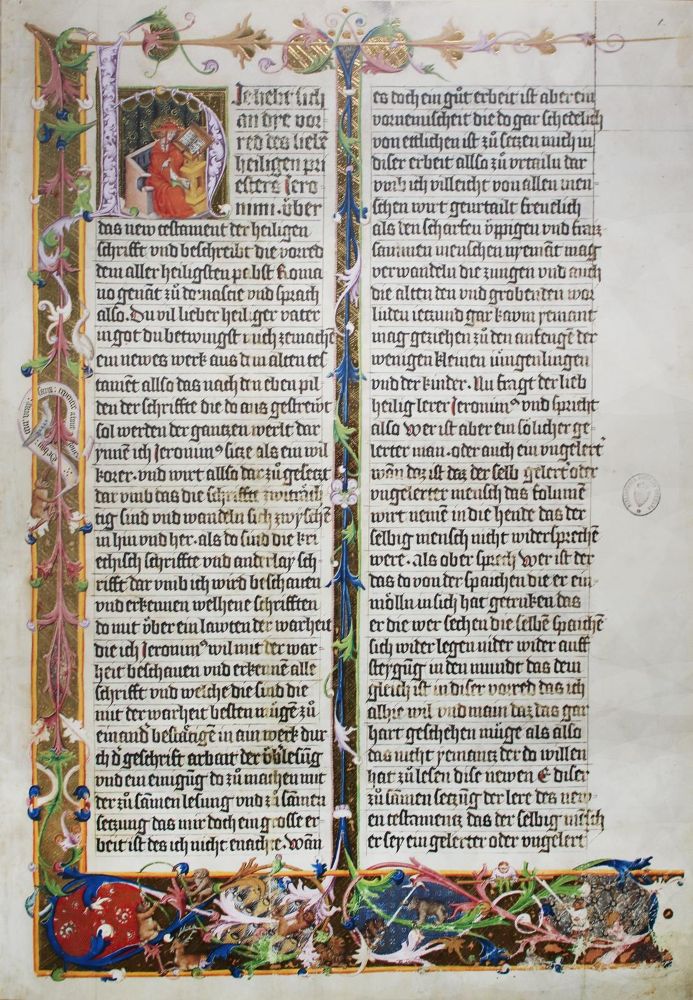 Ie hebt sich
an dye vor
red des liebē
heiligen pri
esters Jero
nimi · über
das new testament der heiligen
schrifft vnd beschreibt die vorred
dem aller heiligsten pabst Roma
no genāt zů domascie vnd sprach
also. Du vil lieber heiliger vater
in got du betwingst mich zemachē
ein newes werk aus dem alten tes
tamēt allso das nach den eben pil
den der schriffte die do aus gestrewt
sol werden der gantzen werlt dar
ynnē ich Jeronimꝰ sitze als ein wil
korer. vnd wirt allso dar zů gesetzt
dar vmb das die schriffte zwiträch
tig sind vnd wandeln sich zwyschē
in hin vnd her. als do sind die kri
echisch schriffte vnd anderlay sch
rifft dar vmb ich wird beschawen
vnd erkennen welhene schrifften
do mit über ein lawten der warheit
die ich Jeronimꝰ wil mit der war
heit beschawen vnd erkennē alle
schrifft vnd welche die sind die
mit der warheit besten mügē zů
einand bestätigē in ain werk dur
ch d geschrift arbait der lesūg
vnd ein einigūg do zů machen mit
der zů samen lesung vnd zů samen
setzung das mir doch ein grosse er
beit ist des ich nicht enach e. wān
es doch ein gůt erbeit ist aber ein
vornemischeit die do gar schedelich
von ettlichen ist zů setzen mich in
diser erbeit allso zů vrtailn dar
vmb ich villeicht von allen men
schen wirt geurtailt freuelich
als den scharfen üppigen vnd
sammen menschen nyemāt mag
verwandeln die zungen vnd auch
die alten den vnd grobenden wor
luden ietzund gar kawm yemant
mag geziehen zů den anfengē der
wenigen kleinen iüngenlingen
vnd der kinder. Nu fragt der lieb
heilig lerer Jeronimꝰ vnd spricht
also wer ist aber ein sölicher ge
lerter man. oder auch ein vngelert
wān daz ist daz der selb gelert oder
vngelerter mensch das folumē
wirt nemē in die hende das der
selbig mensch nicht widersprechē
were. als ober sprech wer ist der
das do von der spaichen die er ein
mölln in sich hat getruken das
er die wer sechen die selbē spaichē
sich wider legen nider wider auff
steygūg in den mundt das dem
gleich ist in diser vorred das ich
alhie wil vnd main daz das gar
hart geschehen müge als also
das nicht yemantz der do willen
hat zů lesen dise newen E diser
zů samen setzūg der lere des new
en testamentz das der selbig mēsch
er sey ein gelerter oder vngelert